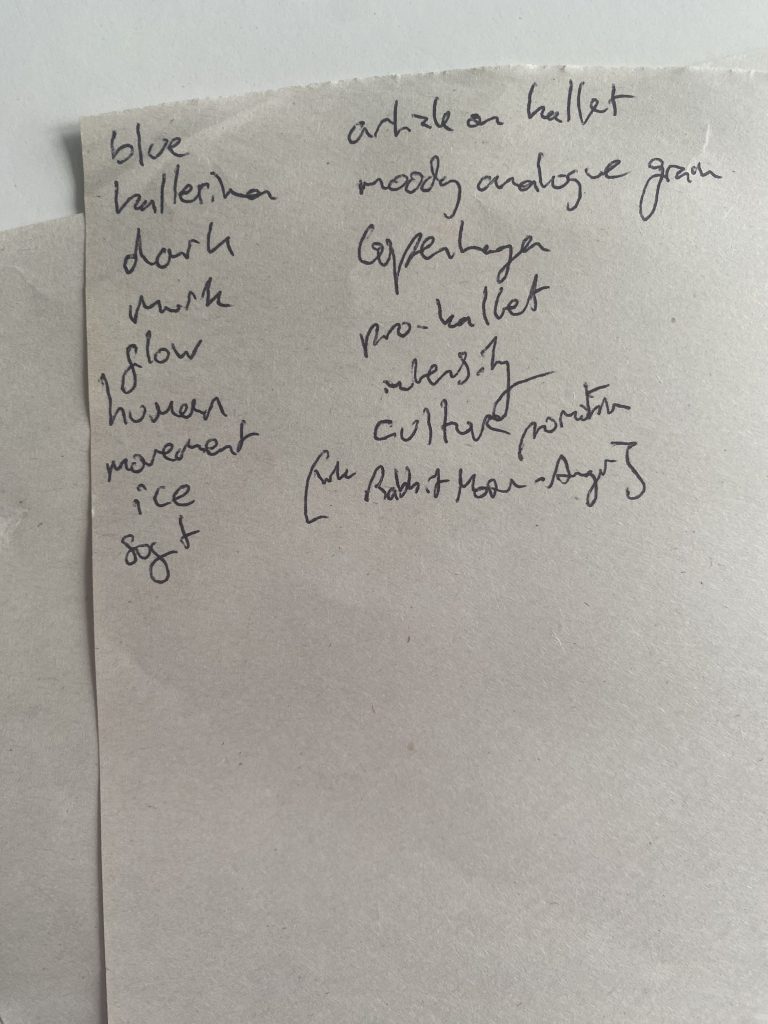 blue
ballerina
dark
murk
glow
human
movement
ice
soft
article on ballet
moody analogue grain
Copenhagen
pro-ballet
intensity
culture
[ Rabbit Moon - Anger]